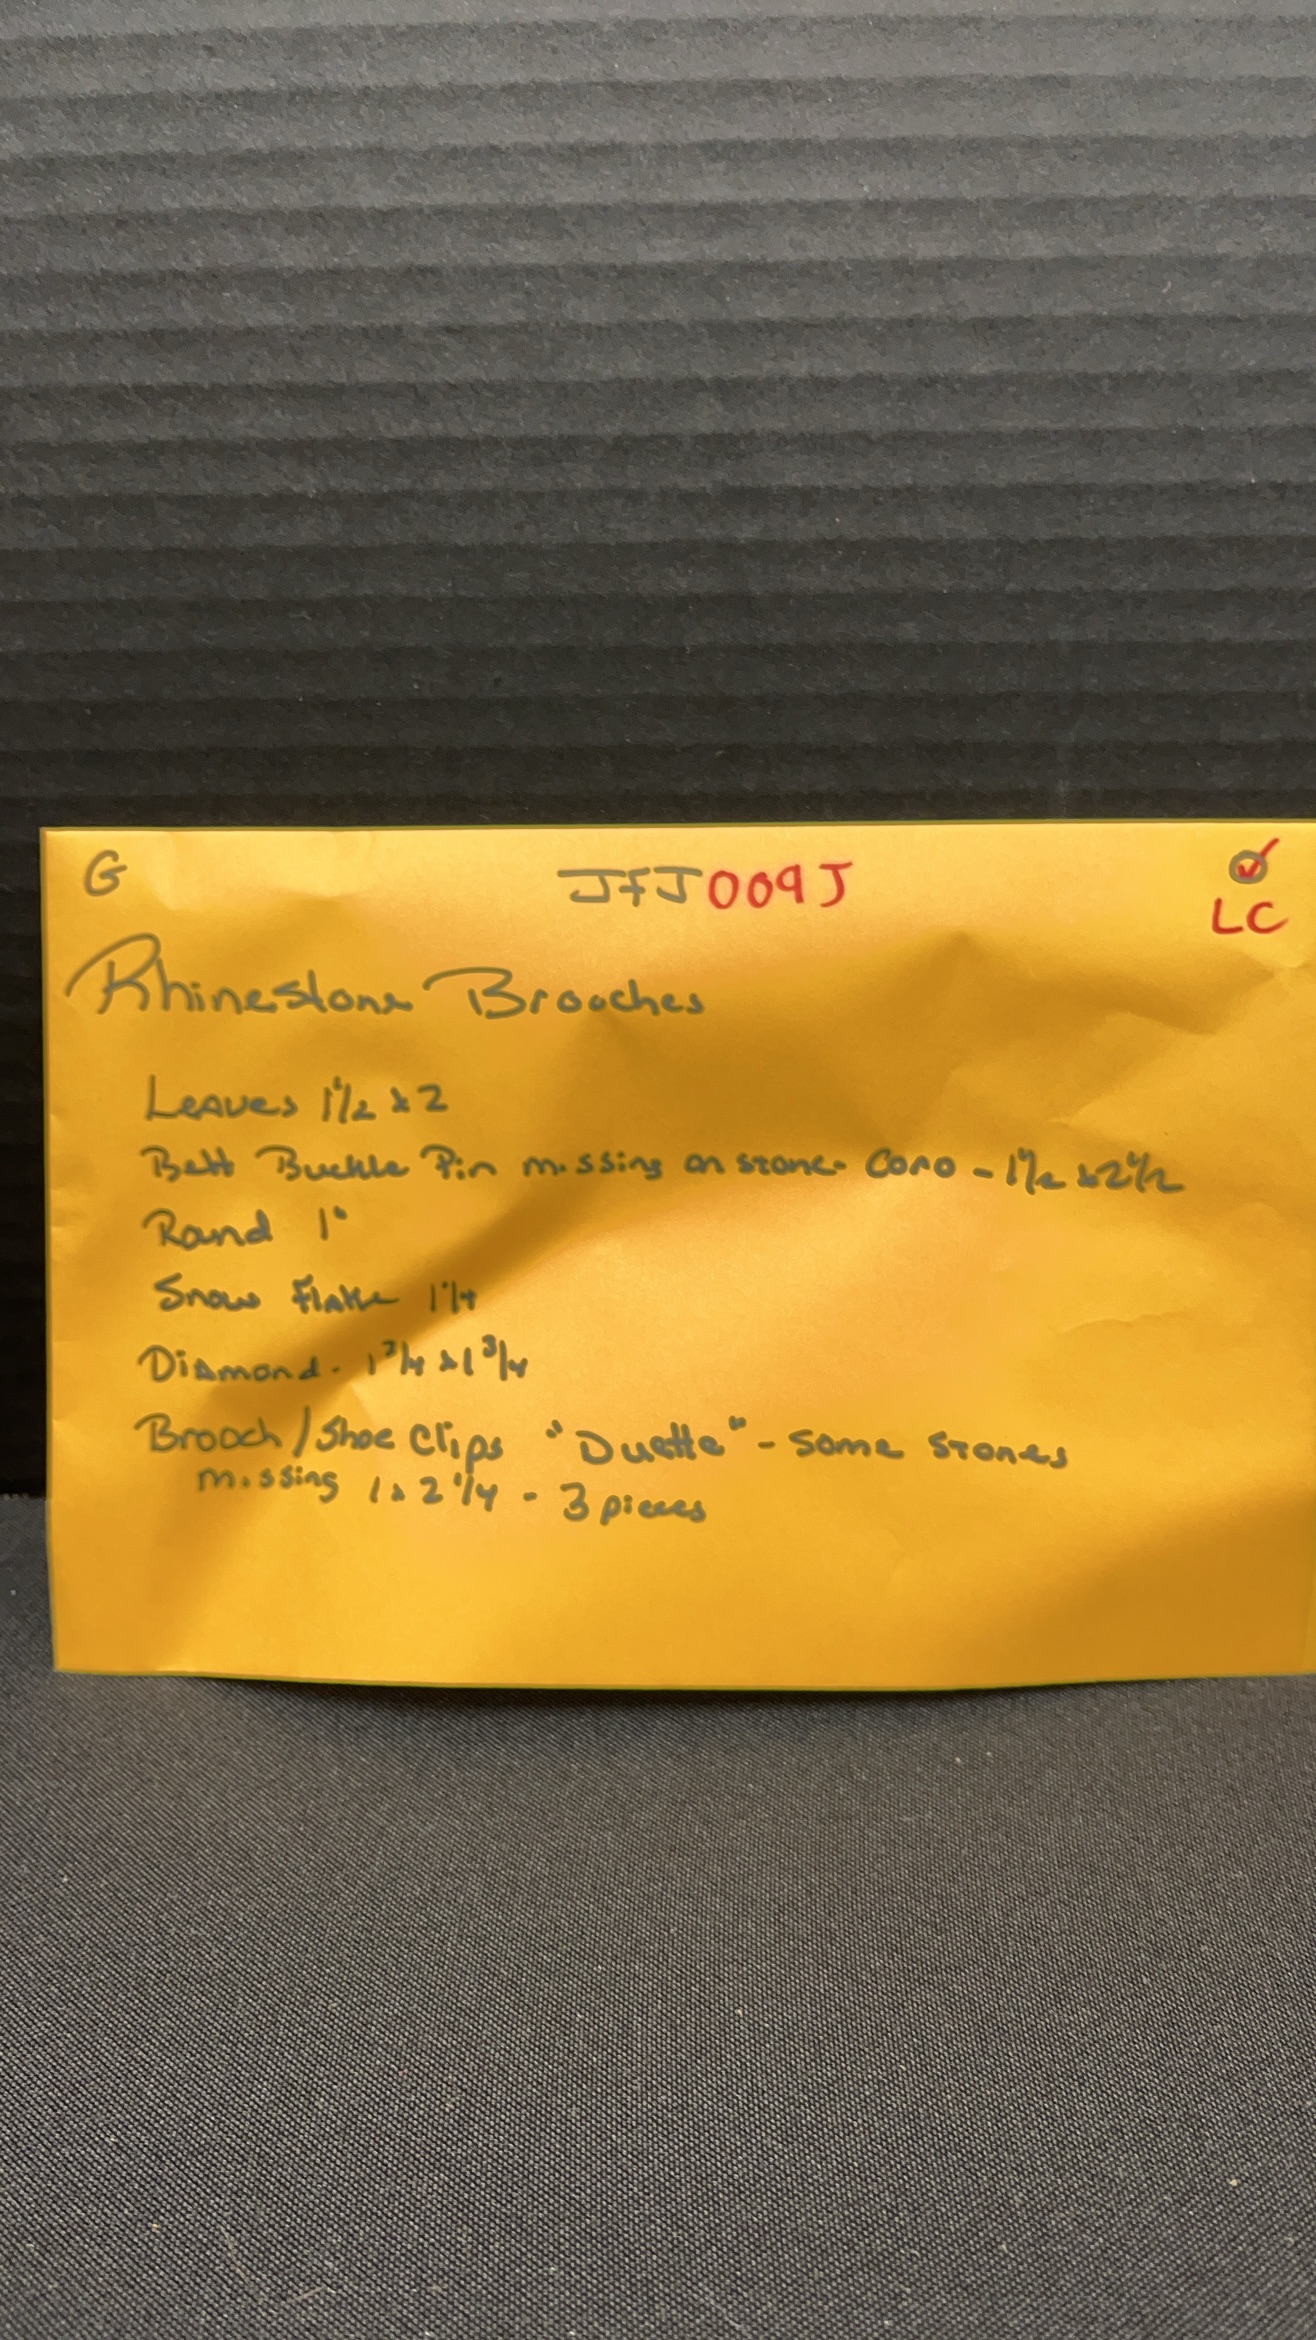 G JFJ009J
LC
Rhinestone Brooches
Leaves 1 1/2 x 2
Belt Buckle Pin missing on stone - Coro - 1 1/2 x 2 1/2
Round 1"
Snow Flake 1 1/4
Diamond - 1 3/4 x 1 3/4
Brooch/Shoe Clips "Duette" - Some Stones
missing 1 x 2 1/4 - 3 pieces